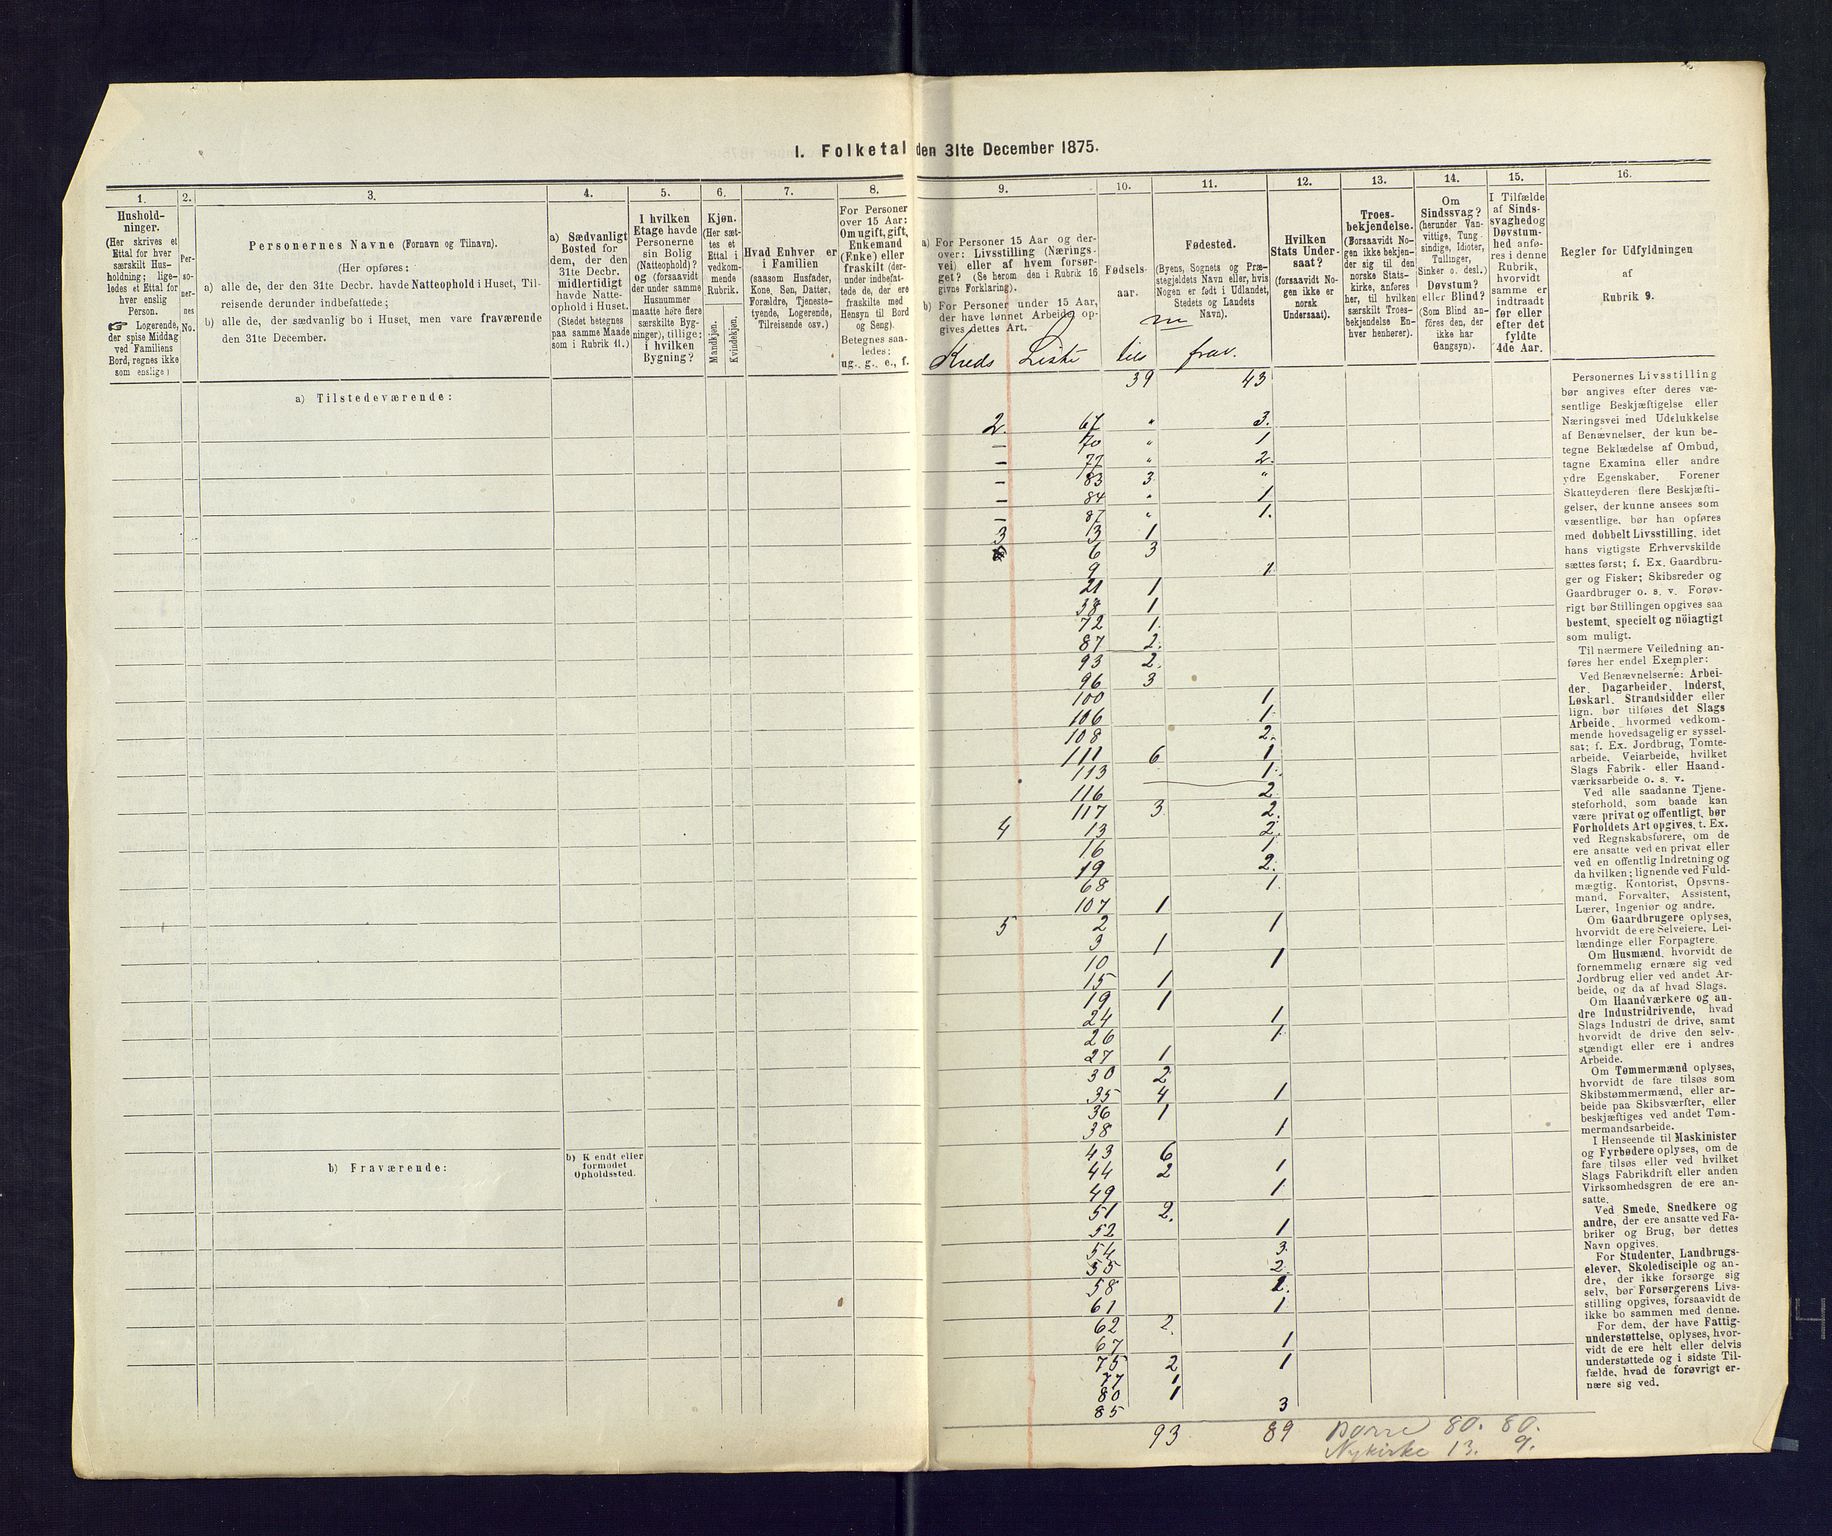 I. Folketal den 31te December 1875.
1.
Hushold-
ninger.
(Her skrives et
Ettal for hver
særskilt Hus-
holdning; lige-
ledes et Ettal for
hver enslig
Person.
☞ Logerende,
der spise Middag
ved Familiens
Bord, regnes ikke
som enslige)
2.
Per-
so-
ner-
nes
No.
3.
Personernes Navne (Fornavn og Tilnavn).
(Her opføres:
a) alle de, der den 31te Decbr. havde Natteophold i Huset, Til-
reisende derunder indbefattede;
b) alle de, der sædvanlig bo i Huset, men vare fraværende
den 31te December.
4.
a) Sædvanligt
Bosted for
dem, der den
31te Decbr.
midlertidigt
havde Natte-
ophold i Huset.
(Stedet betegnes
paa samme Maade
som i Rubrik 11.)
5.
I hvilken
Etage havde
Personerne
sin Bolig
(Natteophold)?
og (forsaavidt
der under samme
Husnummer
maatte høre flere
særskilte Byg-
ninger), tillige:
i hvilken
Bygning?
6.
Kjøn.
(Her sæt-
tes et
Ettal i
vedkom-
mende
Rubrik.
Mandkjøn.
Kvindekjøn.
7.
Hvad Enhver er
i Familien
(saasom Husfader,
Kone, Søn, Datter,
Forældre, Tjeneste-
tyende, Logerende,
Tilreisende osv.)
8.
For Personer
over 15 Aar:
Om ugift, gift,
Enkemand
(Enke) eller
fraskilt (der-
under indbefat-
tede de, der ere
fraskilte med
Hensyn til Bord
og Seng).
Betegnes saa-
ledes:
ug., g., e., f.
9.
a) For Personer 15 Aar og der-
over: Livsstilling (Nærings-
vei) eller af hvem forsør-
get? (Se herom den i Rubrik 16
givne Forklaring).
b) For Personer under 15 Aar,
der have lønnet Arbeide, op-
gives dettes Art.
10.
Fødsels-
aar.
11.
Fødested.
(Byens, Sognets og Præ-
stegjeldets Navn eller, hvis
Nogen er født i Udlandet,
Stedets og Landets
Navn).
12.
Hvilken
Stats Under-
saat?
(forsaavidt No-
gen ikke er
norsk
Undersaat).
13.
Troes-
bekjendelse.
(Forsaavidt No-
gen ikke bekjen-
der sig til den
norske Stats-
kirke, anføres
her, til hvilken
særskilt Troes-
bekjendelse En-
hver henhører).
14.
Om
Sindssvag?
(herunder Van-
vittige, Tung-
sindige, Idioter,
Tullinger,
Sinker o. desl.)
Døvstum?
eller Blind?
(Som Blind an-
føres den, der
ikke har
Gangsyn).
15.
I Tilfælde
af Sinds-
svaghed og
Døvstum-
hed anfø-
res i denne
Rubrik,
hvorvidt
samme er
indtraadt
før eller
efter det
fyldte
4de Aar.
16.
Regler for Udfyldningen
af
Rubrik 9.
Kreds Liste tils frav.
39 43
a) Tilstedeværende:
2. 67 " 3.
— 70 " 1
— 77 " 2.
— 83 3 "
— 84 " 1
— 87 " 1.
3 3 1
6 3
9 1
21 1
38 1
72 1.
87 2.
93 2.
96 3
100 1
106 1.
108 2.
111 6 1
113 1.
116 2
117 3 2.
4 13 2.
16 1
19 2.
68 1.
107 1
5 2 1
3 1
10 1
15 1
19 1
24 1
26 1
27 1
30 2
35 4 1
36 1
38 1
43 6
44 2 1
49 1
51 2.
52 1
54 3
55 2.
58 2.
61 1
62 2.
67 1
75 2 1
77 1
80 1
85 3
93 89 Borre 80. 80.
Nykirke 13. 9.
b) Fraværende:
b) Kjendt eller
formodet
Opholdssted.
Personernes Livsstilling
bør angives efter deres væ-
sentlige Beskjæftigelse eller
Næringsvei med Udelukkelse
af Benævnelser, der kun be-
tegne Beklædelse af Ombud,
tagne Examina eller andre
ydre Egenskaber. Forener
Skatteyderen flere Beskjæfti-
gelser, der kunne ansees som
væsentlige, bør han opføres
med dobbelt Livsstilling, idet
hans vigtigste Erhvervskilde
sættes først; f. Ex. Gaardbru-
ger og Fisker; Skibsreder og
Gaardbruger o. s. v. Forøv-
rigt bør Stillingen opgives saa
bestemt, specielt og nöiagtigt
som muligt.
Til nærmere Veiledning an-
føres her endel Exempler:
Ved Benævnelserne: Arbei-
der, Dagarbeider, Inderst,
Løskarl, Strandsidder eller
lign. bør tilføies det Slags
Arbeide, hvormed vedkom-
mende hovedsagelig er syssel-
sat; f. Ex. Jordbrug, Tomte-
arbeide, Veiarbeide, hvilket
Slags Fabrik- eller Haand-
værksarbeide o. s. v.
Ved alle saadanne Tjene-
steforhold, som baade kan
være privat og offentligt, bør
Forholdets Art opgives, f. Ex.
ved Regnskabsførere, om de
ere ansatte ved en privat eller
ved en offentlig Indretning og
da hvilken; lignende ved Fuld-
mægtig, Kontorist, Opsyns-
mand, Forvalter, Assistent,
Lærer, Ingeniør og andre.
Om Gaardbrugere oplyses,
hvorvidt de ere Selveiere, Lei-
lændinge eller Forpagtere.
Om Husmænd, hvorvidt de
fornemmelig ernære sig ved
Jordbrug eller ved andet Ar-
beide, og da af hvad Slags.
Om Haandværkere og an-
dre Industridrivende, hvad
Slags Industri de drive, samt
hvorvidt de drive den selv-
stændigt eller ere i andres
Arbeide.
Om Tømmermænd oplyses,
hvorvidt de fare tilsøs som
Skibstømmermænd, eller ar-
beide paa Skibsværfter, eller
beskjæftiges ved andet Tøm-
mermandsarbeide.
I Henseende til Maskinister
og Fyrbødere oplyses, om de
fare tilsøs eller ved hvilket
Slags Fabrikdrift eller anden
Virksomhedsgren de ere an-
satte.
Ved Smede, Snedkere og
andre, der ere ansatte ved Fa-
briker og Brug, bør dettes
Navn opgives.
For Studenter, Landbrugs-
elever, Skoledisciple og an-
dre, der ikke forsørge sig
selv, bør Forsørgerens Livs-
stilling opgives, forsaavidt de
ikke bo sammen med denne.
For dem, der have Fattig-
understøttelse, oplyses, hvor-
vidt de ere helt eller delvis
understøttede og i sidste Til-
fælde, hvad de forøvrigt er-
nære sig ved.